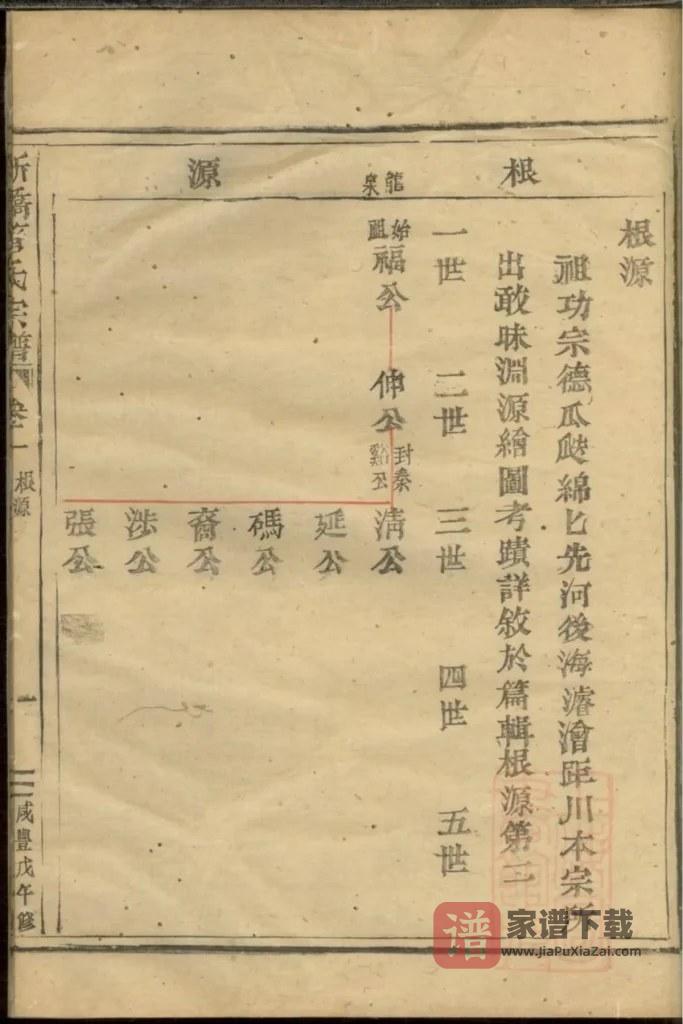 根源
祖功宗德瓜瓞綿匕先河後海濬澮距川本宗所
出敢昧淵源繪圖考蹟詳敘於篇輯根源第二
根 龍泉 源
一世 二世 三世 四世 五世
始祖福公
仲公 封秦谿公
清公
延公
碼公
裔公
涉公
張公
氏宗譜 卷一 根源
咸豐戊午修
谱 家谱下载
www.jiaPuXiaZai.com